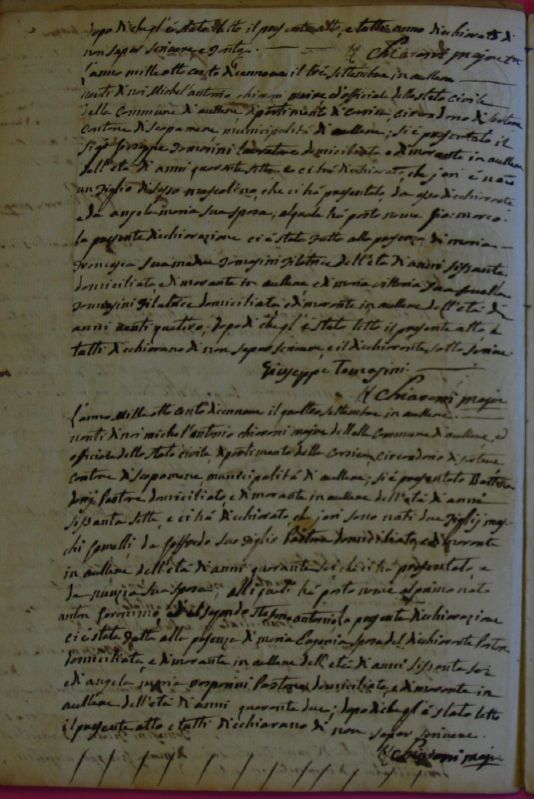 dopo di che gl'è stato letto il presente atto, e tutti anno dicchiarato di
non saper scrivere e
Chiaroni majre
L'anno mille otto cento dicennove il tré settembre in aullene
nanti di noi Michel' antonio chiaroni maire ed officiale dello stato civile
della Commune di aullene dipartimento di Corsica, circondario di sartene
Cantone di scopamene municipalità di aullene; si é presentato il
sigr Giuseppe Tomasini lavoratore domiciliato e dimorante in aullene
dell'età di anni quaranta sette e ci há dicchiarato, che jeri é nato
un figlio di sesso mascolino, che ci há presentato, da esso dicchiarante
e da angela maria sua sposa, al quale há posto nome Gio: marco.
la presente dicchiarazione ci é stata fatta alla presenza di maria
Francesca sua madre Tomasini filatrice dell'età di anni sissanta
domiciliata e dimorante in aullene e di maria vittoria sua sorella
Tomasini filatrice domiciliata e dimorante in aullene dell'età di
anni venti quatro, dopo di che gl'é stato letto il presente atto é
tutti dicchiarano di non saper scrivere, e il dicchiarante sotto scrive
Giuseppe Tomasini
Chiaroni majre
L'anno mille otto cento dicennove il quattro settembre in aullene
nanti di noi michel'antonio chiaroni majre della Commune di aullene, ed
officiale dello stato civile, dipartimento della Corsica, circondario di sartene
Cantone di scopamene municipalità di aullene, si é presentato Battista
Pastore domiciliato e dimorante in aullene dell'età di anni
sissanta sette, e ci há dicchiarato, che jeri sono nati due figlij mas-
chi gemelli da suo figlio Pastore domiciliato, e dimorante
in aullene dell'età di anni quaranta sei che ci há presentato, e
da nunzia sua sposa, alli quali há posto nome al primo nato
anton Geronimo ed al secondo antonio la presente dicchiarazione
ci é stata fatta alla presenza di maria sposa del dicchiarante Pastora
domiciliata, e dimorante in aullene dell'età di anni sissanta sei
e di angela maria Pastora domiciliata, e dimorante in
aullene dell'età di anni quaranta due; dopo di che gl'é stato letto
il presente atto e tutti dicchiarano di non saper scrivere.
Chiaroni majre